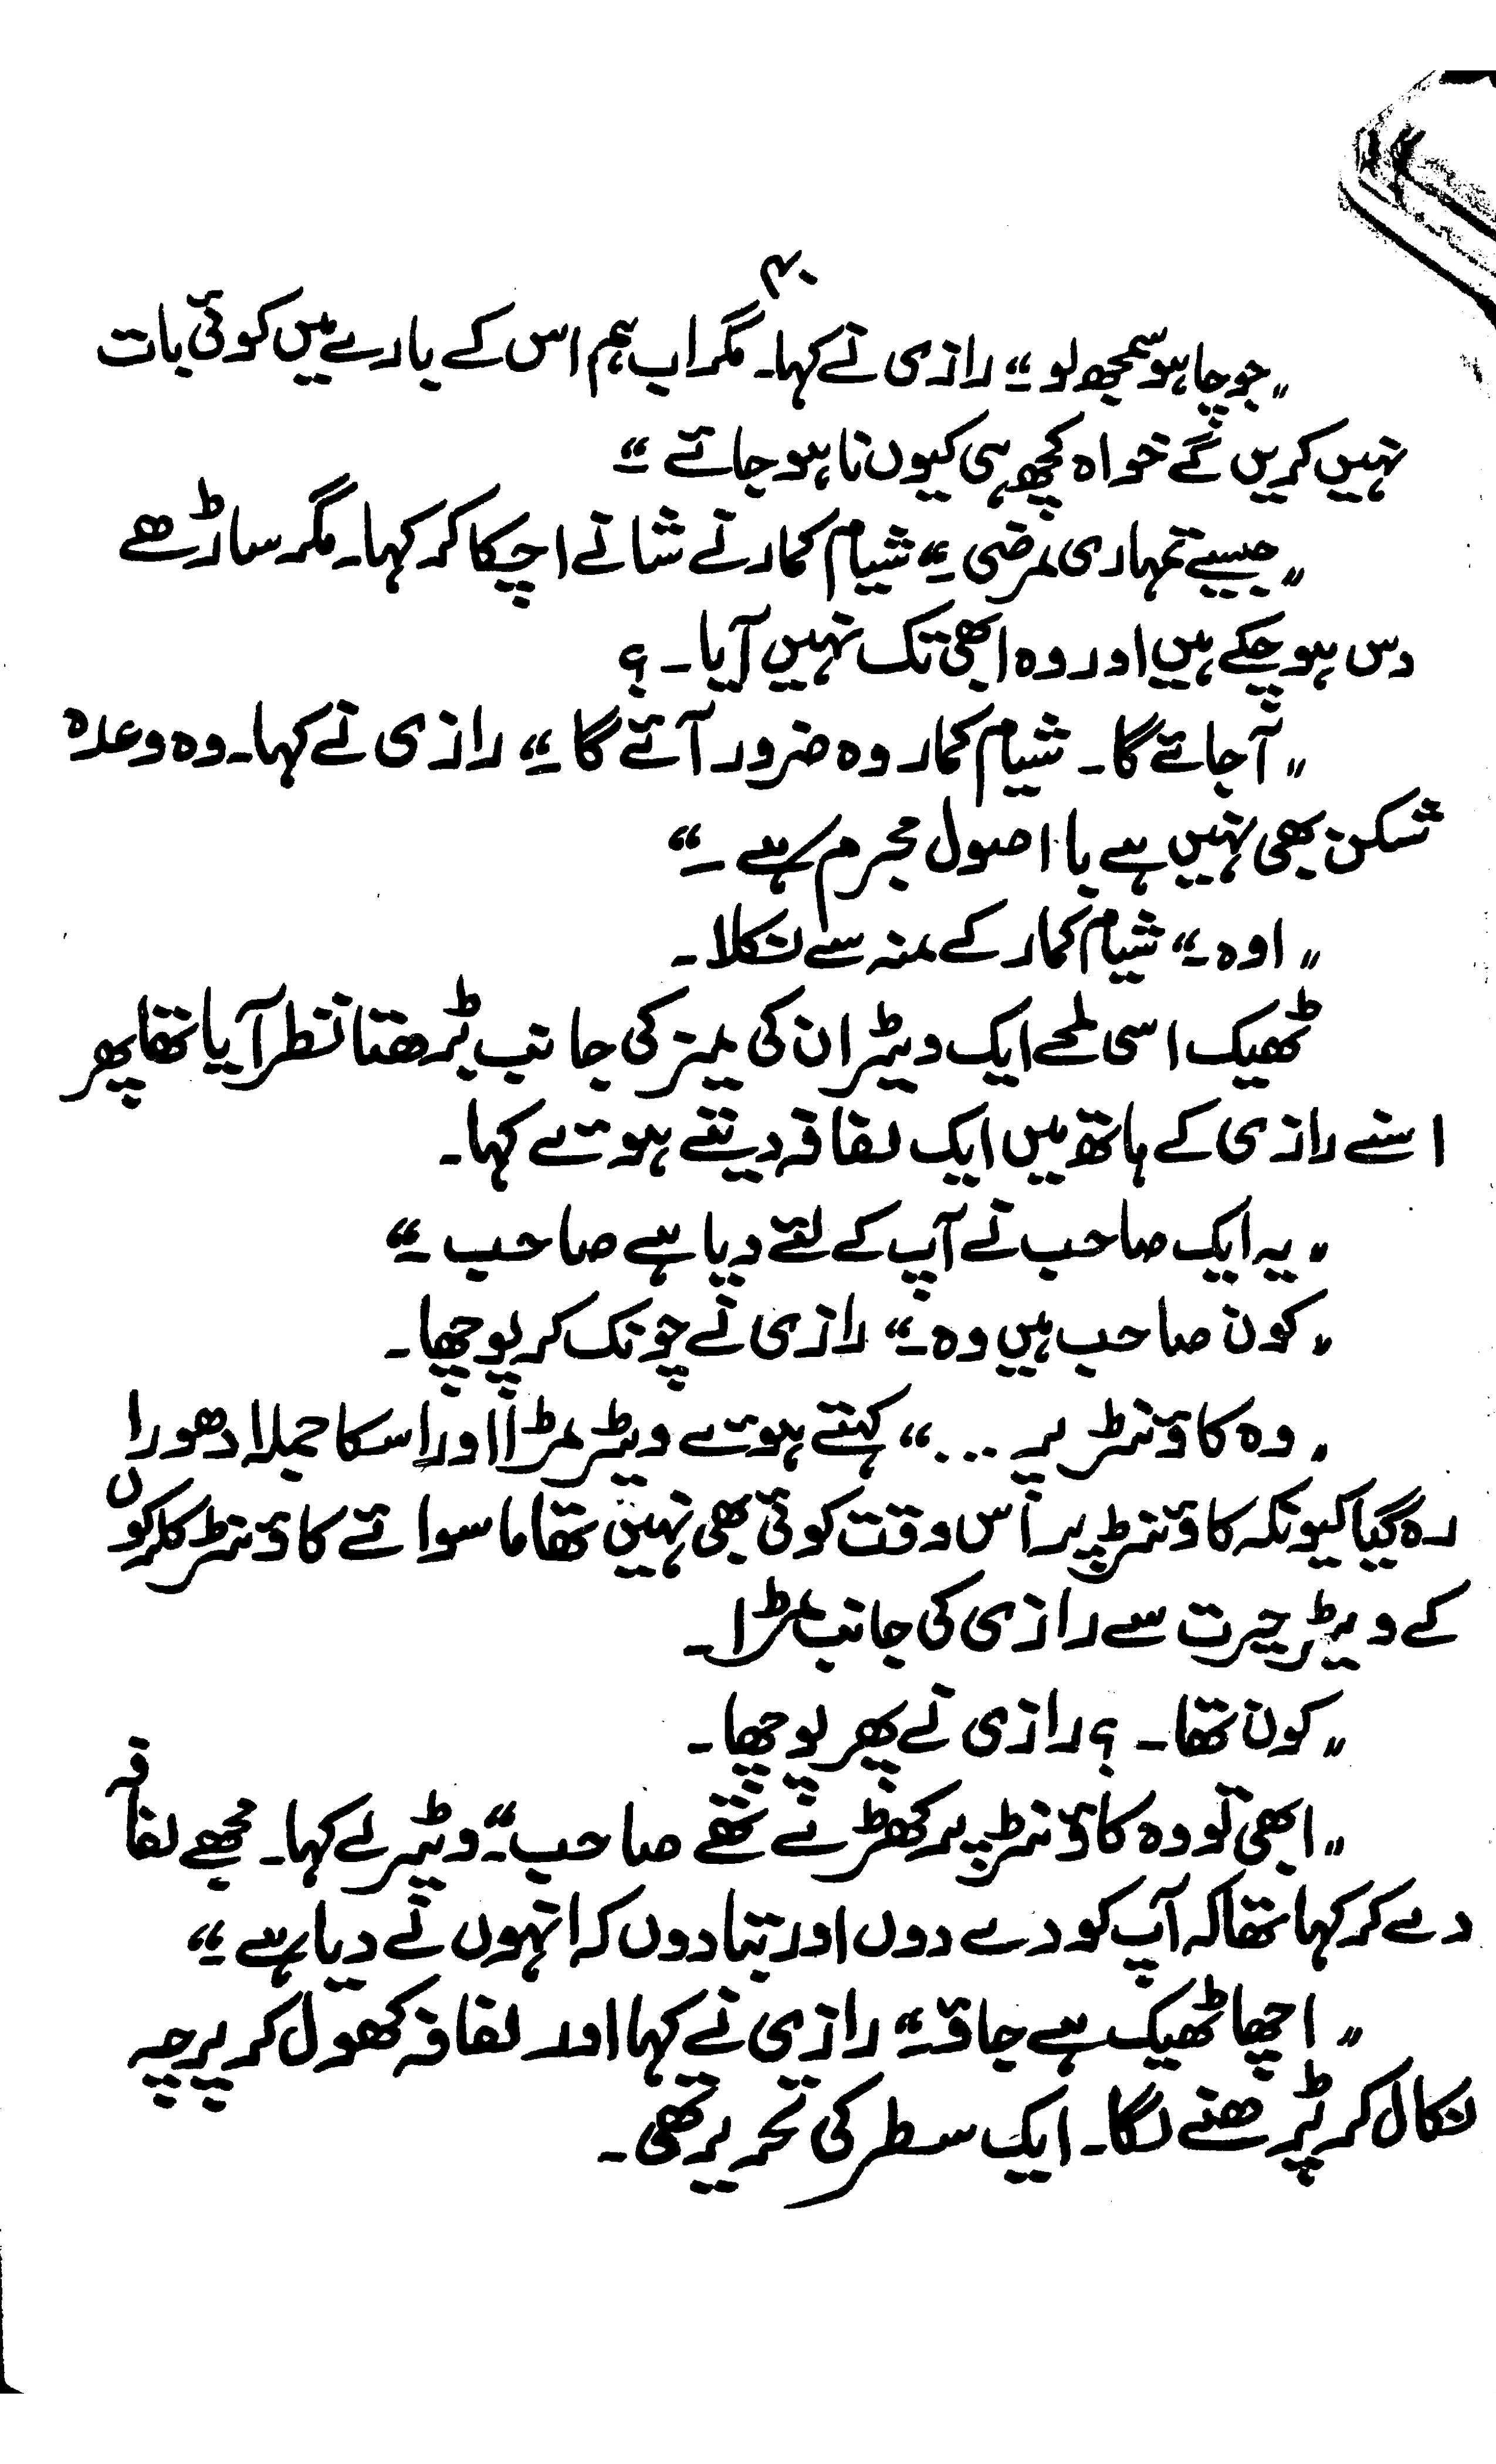 ۴۰
”جو چاہو سمجھ لو۔“ رازی نے کہا۔ مگر اب ہم اس کے بارے میں کوئی بات
نہیں کریں گے خواہ کچھ ہی کیوں نا ہو جائے۔“
”جیسے تمہاری مرضی۔“ شیام کمار نے شانے اچکا کر کہا۔ مگر ساڑھے
دس ہو چکے ہیں اور وہ ابھی تک نہیں آیا۔؟
”آ جائے گا۔ شیام کمار وہ ضرور آئے گا۔“ رازی نے کہا۔ وہ وعدہ
شکن بھی نہیں ہے با اصول مجرم ہے۔“
”اوہ۔“ شیام کمار کے منہ سے نکلا۔
ٹھیک اسی لمحے ایک ویٹر ان کی میز کی جانب بڑھتا نظر آیا تھا پھر
اسنے رازی کے ہاتھ میں ایک لفافہ دیتے ہوئے کہا۔
”یہ ایک صاحب نے آپ کے لئے دیا ہے صاحب۔“
”کون صاحب ہیں وہ۔“ رازی نے چونک کر پوچھا۔
”وہ کاؤنٹر پر ...“ کہتے ہوئے ویٹر مڑا اور اسکا جملا ادھورا
رہ گیا کیونکہ کاؤنٹر پر اس وقت کوئی بھی نہیں تھا ماسوائے کاؤنٹر کلرکوں
کے ویٹر حیرت سے رازی کی جانب مڑا۔
”کون تھا۔؟ رازی نے پھر پوچھا۔
”ابھی تو وہ کاؤنٹر پر کھڑے تھے صاحب۔“ ویٹر نے کہا۔ مجھے لفافہ
دے کر کہا تھا کہ آپ کو دے دوں اور بتا دوں کہ انہوں نے دیا ہے۔“
”اچھا ٹھیک ہے جاؤ۔“ رازی نے کہا اور لفافہ کھول کر پرچہ
نکال کر پڑھنے لگا۔ ایک سطر کی تحریر تھی۔